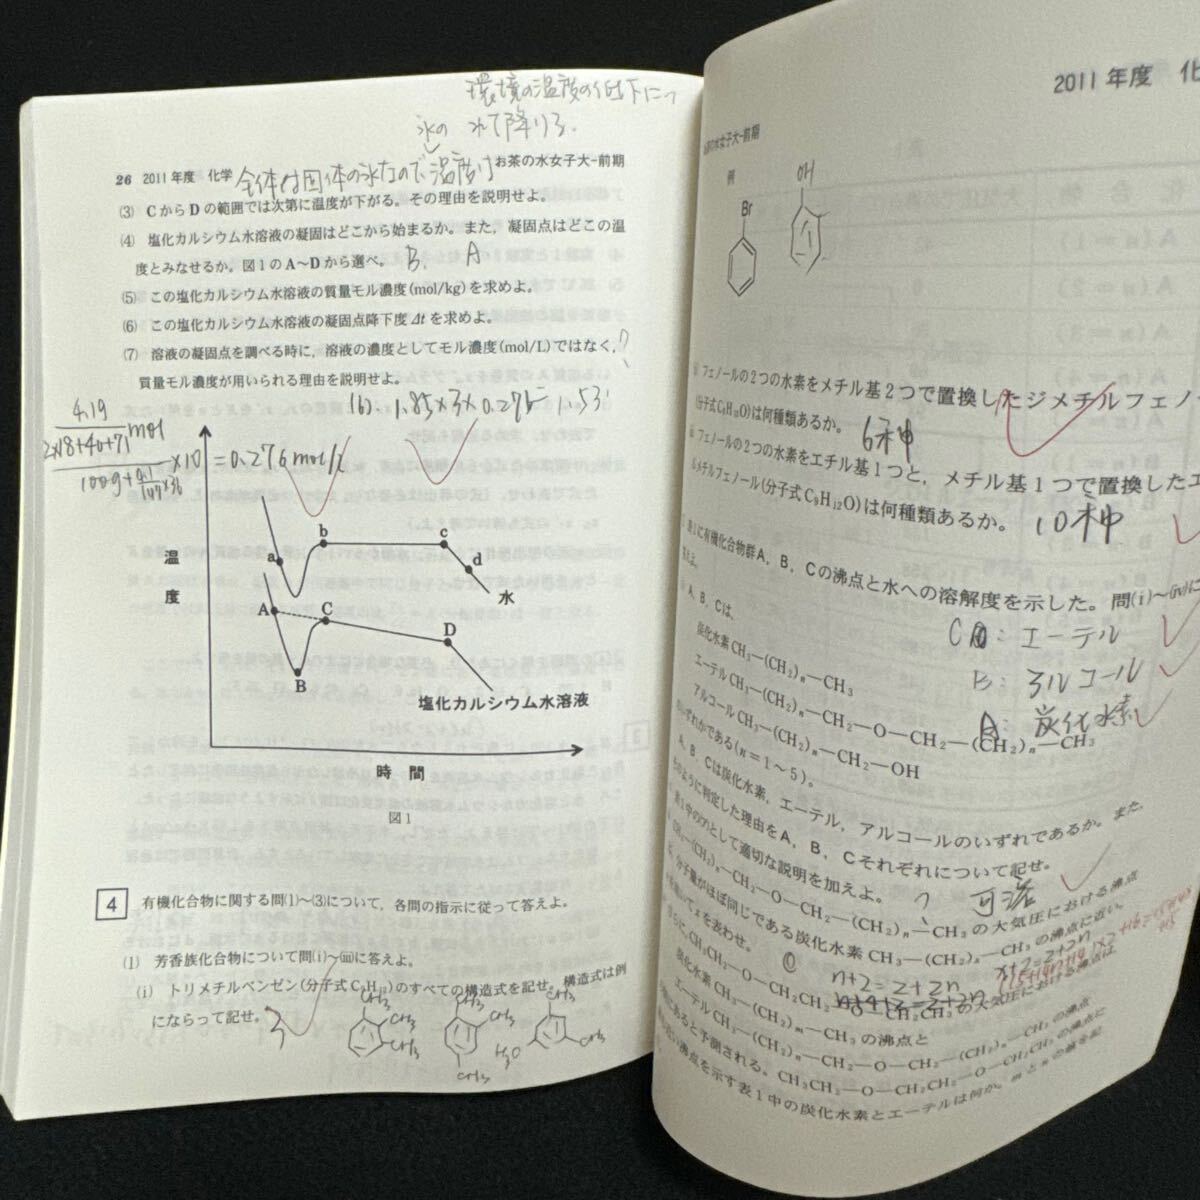 環境の温度の低下につ
氷の れて降りる.
26 2011年度 化学 全体は固体の氷なので温度は お茶の水女子大-前期
(3) CからDの範囲では次第に温度が下がる。その理由を説明せよ。
(4) 塩化カルシウム水溶液の凝固はどこから始まるか。また，凝固点はどこの温
度とみなせるか。図1のA～Dから選べ。 B, A
(5) この塩化カルシウム水溶液の質量モル濃度(mol/kg)を求めよ。
(6) この塩化カルシウム水溶液の凝固点降下度Δtを求めよ。
(7) 溶液の凝固点を調べる時に，溶液の濃度としてモル濃度(mol/L)ではなく， ?
質量モル濃度が用いられる理由を説明せよ。
(6). 1.85×3×0.276= 1.53
4.19
2×18+40+71 mol
×10 = 0.276 mol/
温度
a
b
c
d
水
A
B
C
D
塩化カルシウム水溶液
時 間
図1
4 有機化合物に関する問(1)～(3)について，各問の指示に従って答えよ。
(1) 芳香族化合物について問(i)～(iii)に答えよ。
(i) トリメチルベンゼン(分子式C9H12)のすべての構造式を記せ。構造式は例
にならって記せ。 3
CH3
CH3
CH3
CH3
CH3
CH3
CH3
H3C
CH3
2011年度 化
の水女子大-前期
例
Br
OH
フェノールの2つの水素をメチル基2つで置換したジメチルフェノー
(分子式C8H10O)は何種類あるか。 6種
フェノールの2つの水素をエチル基1つと，メチル基1つで置換したエ
ルメチルフェノール(分子式C9H12O)は何種類あるか。 10種
1に有機化合物群A，B，Cの沸点と水への溶解度を示した。問(i)～(iv)に
答えよ。
C : エーテル
B : アルコール
A : 炭化水素
A，B，Cは，
炭化水素 CH3—(CH2)n—CH3
エーテル CH3—(CH2)n—CH2—O—CH2—(CH2)n—CH3
アルコール CH3—(CH2)n—CH2—OH
のいずれかである(n＝1～5)。
A，B，Cは炭化水素，エーテル，アルコールのいずれであるか。また，
そのように判定した理由をA，B，Cそれぞれについて記せ。
表1中の(ア)として適切な説明を加えよ。 ? 可溶
CH3—(CH2)n—O—CH2—(CH2)n—CH3の大気圧における沸点
は，分子量がほぼ同じである炭化水素 CH3—(CH2)x—CH3の沸点に近い。
を用いてxを表わせ。 n+2=2+2n
さらに，CH3CH2—O—CH2CH2—O—CH2CH3の大気圧における沸点は
炭化水素 CH3—(CH2)m—CH3の沸点と
エーテル CH3—(CH2)n—O—CH2—(CH2)n—CH3の沸点
の間にあると予測される。CH3CH2—O—CH2CH2—O—CH2CH3の沸点に
近い沸点を示す表1中の炭化水素とエーテルは何か。mとnの値を記